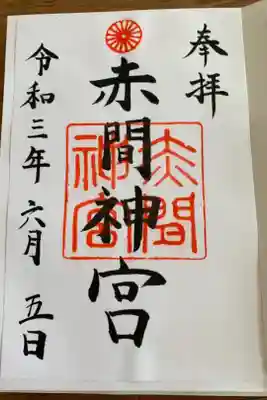 奉拝
赤間神宮
赤間
神宮
令和三年六月五日